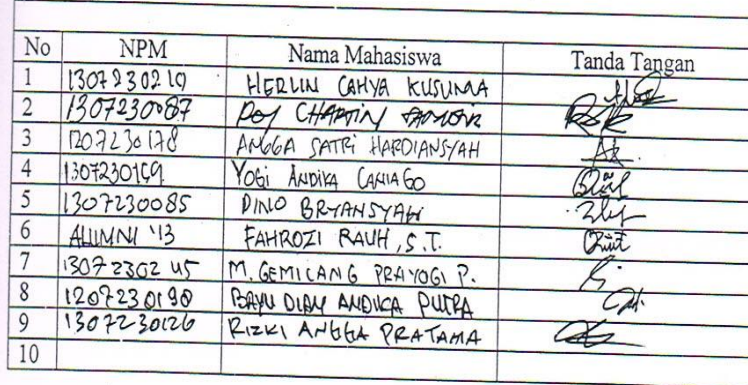 No NPM Nama Mahasiswa Tanda Tangan
1 1307230210 HERLIN CAHYA KUSUMA
2 1307230087 ROY CHAPTIN
3 1207230178 ANGGA SATRI HARDIANSYAH
4 YOGI ANDIKA CANIAGO
5 1307230085 DINO BRYANSYAH
6 ALUMNI '13 FAHROZI RAUH, S.T.
7 1307230245 M. GEMILANG PRAYOGI P.
8 1207230190 BAYU DIAN ANDIKA PUTRA
9 1307230126 RIZKI ANGGA PRATAMA
10